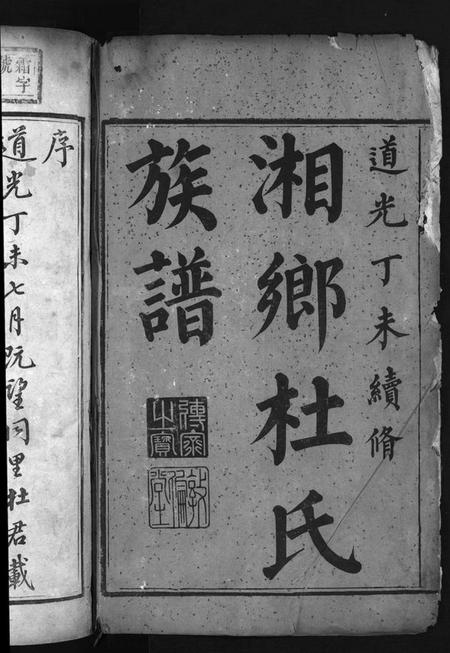 道光丁未續脩
湘鄉杜氏
族譜
敦倫堂
霜字
號
序
道光丁未七月既望同里杜君載